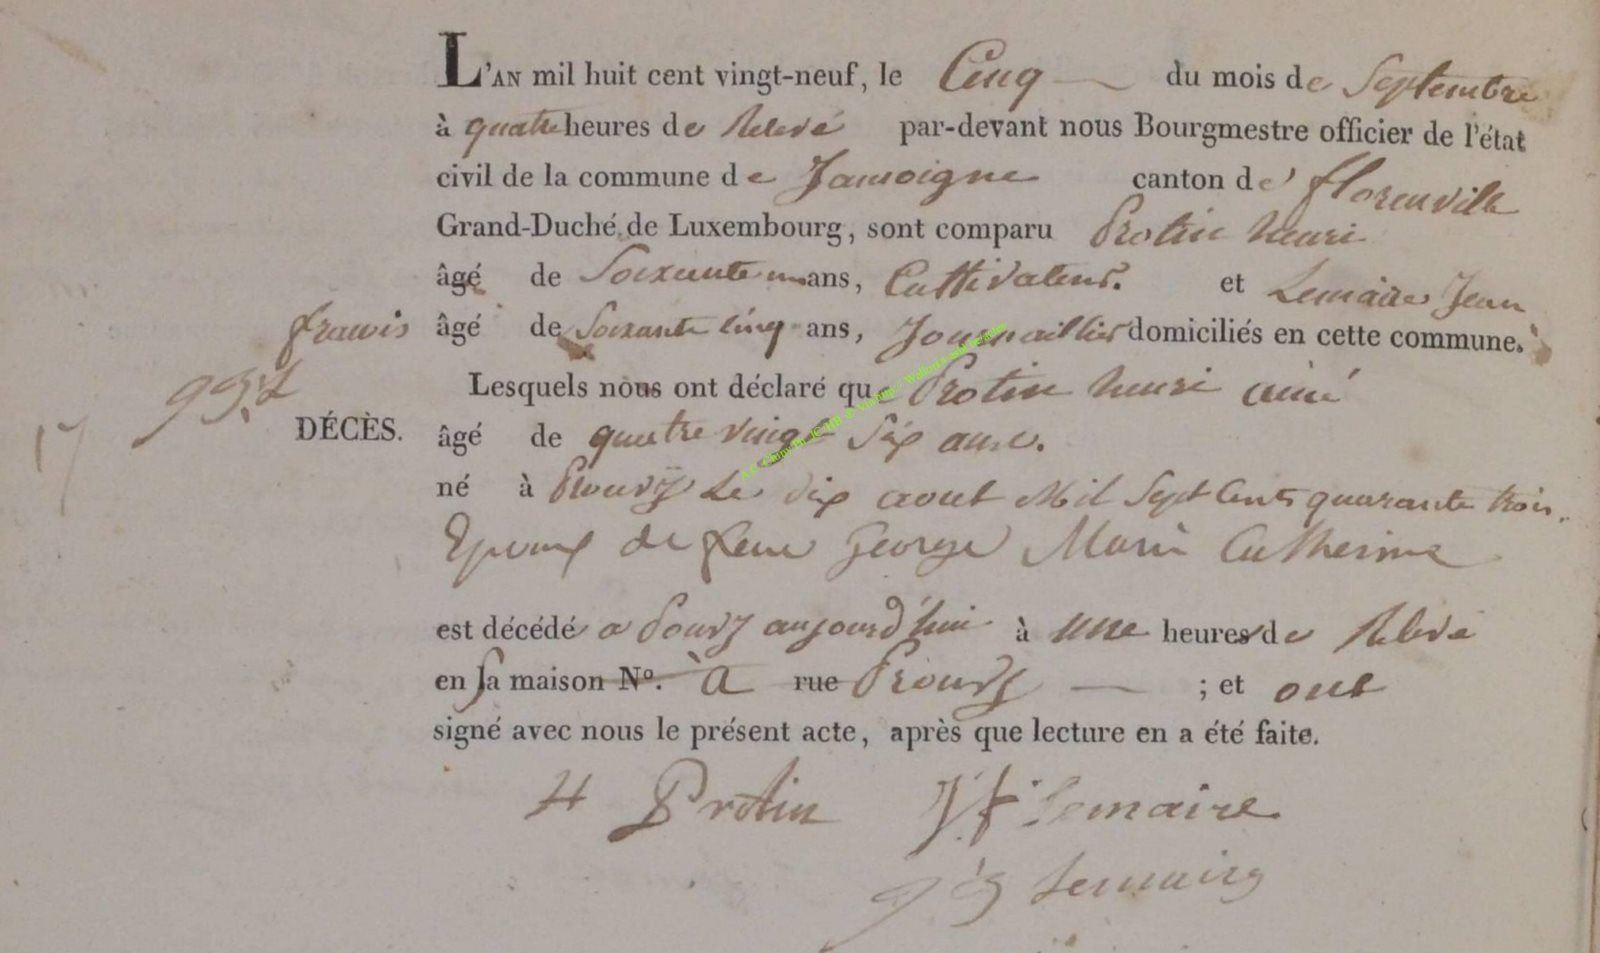 L'AN mil huit cent vingt-neuf, le Cinq du mois de Septembre
à quatre heures de Relevé par-devant nous Bourgmestre officier de l'état
civil de la commune de Jamoigne canton de florenville
Grand-Duché de Luxembourg, sont comparu Protin henri
âgé de Soixante un ans, Cultivateur. et Lemaire Jean
francois âgé de Soixante cinq ans, Journaillier domiciliés en cette commune.
Lesquels nous ont déclaré que Protin henri ainé
17
DÉCÈS. âgé de quatre vingt Six ans.
né à Prouvy Le dix aout Mil Sept Cents quarante trois.
Epoux de feue George Marie Catherine
est décédé a Pouvy aujourd'hui à une heures de Relevé
en sa maison N°. à rue Prouvy ; et ont
signé avec nous le présent acte, après que lecture en a été faite.
H Protin J f lemaire
Lemaire